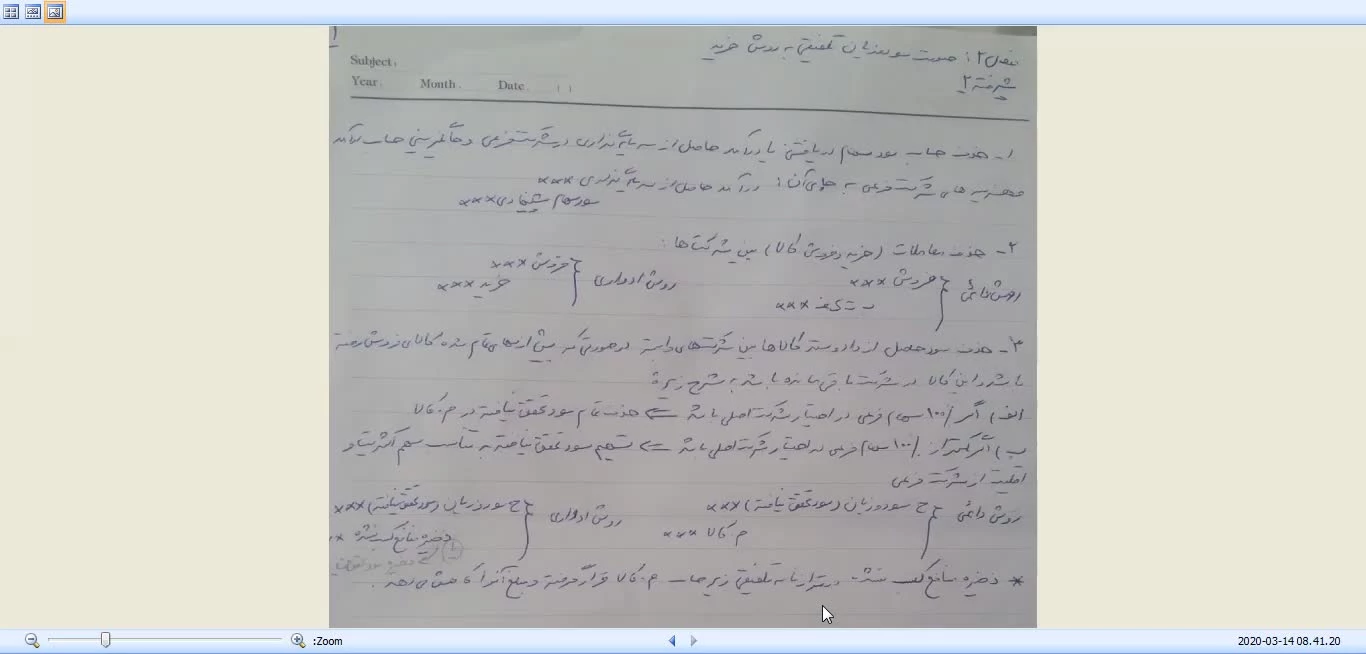 فصل ۲: صورت سود و زیان تلفیقی به روش خرید
پیشرفته ۲
۱
Subject:
Year. Month. Date. ( )
۱- حذف حساب سود سهام دریافتنی یا درآمد حاصل از سرمایه‌گذاری در شرکت فرعی و جایگزینی حساب درآمد
و هزینه های شرکت فرعی به جای آن: درآمد حاصل از سرمایه‌گذاری ×××
سود سهام پیشنهادی ×××
۲- حذف معاملات (خرید و فروش کالا) بین شرکت‌ها:
روش دائمی { ح فروش ××× روش ادواری { ح فروش ×××
ب ت ک ف ××× خرید ×××
۳- حذف سود حاصل از داد و ستد کالاها بین شرکتهای وابسته در صورتی که بیش از بهای تمام شده کالای فروش رفته
باشد و این کالا در شرکت باقی مانده باشد به شرح زیر:
الف) اگر ۱۰۰٪ سهام فرعی در اختیار شرکت اصلی باشد ⇐ حذف تمام سود تحقق نیافته در م. کالا
ب) اگر کمتر از ۱۰۰٪ سهام فرعی در اختیار شرکت اصلی باشد ⇐ تسهیم سود تحقق نیافته به تناسب سهم اکثریت و
اقلیت از شرکت فرعی
روش دائمی { ح ح سود و زیان (سود تحقق نیافته) ××× روش ادواری { ح ح سود و زیان (سود تحقق نیافته) ×××
م. کالا ××× ذخیره منافع کسب نشده ×
* ذخیره منافع کسب نشده در ترازنامه تلفیقی زیر حساب م. کالا قرار گرفته و مبلغ آنرا کاهش می دهد.
:Zoom
2020-03-14 08.41.20